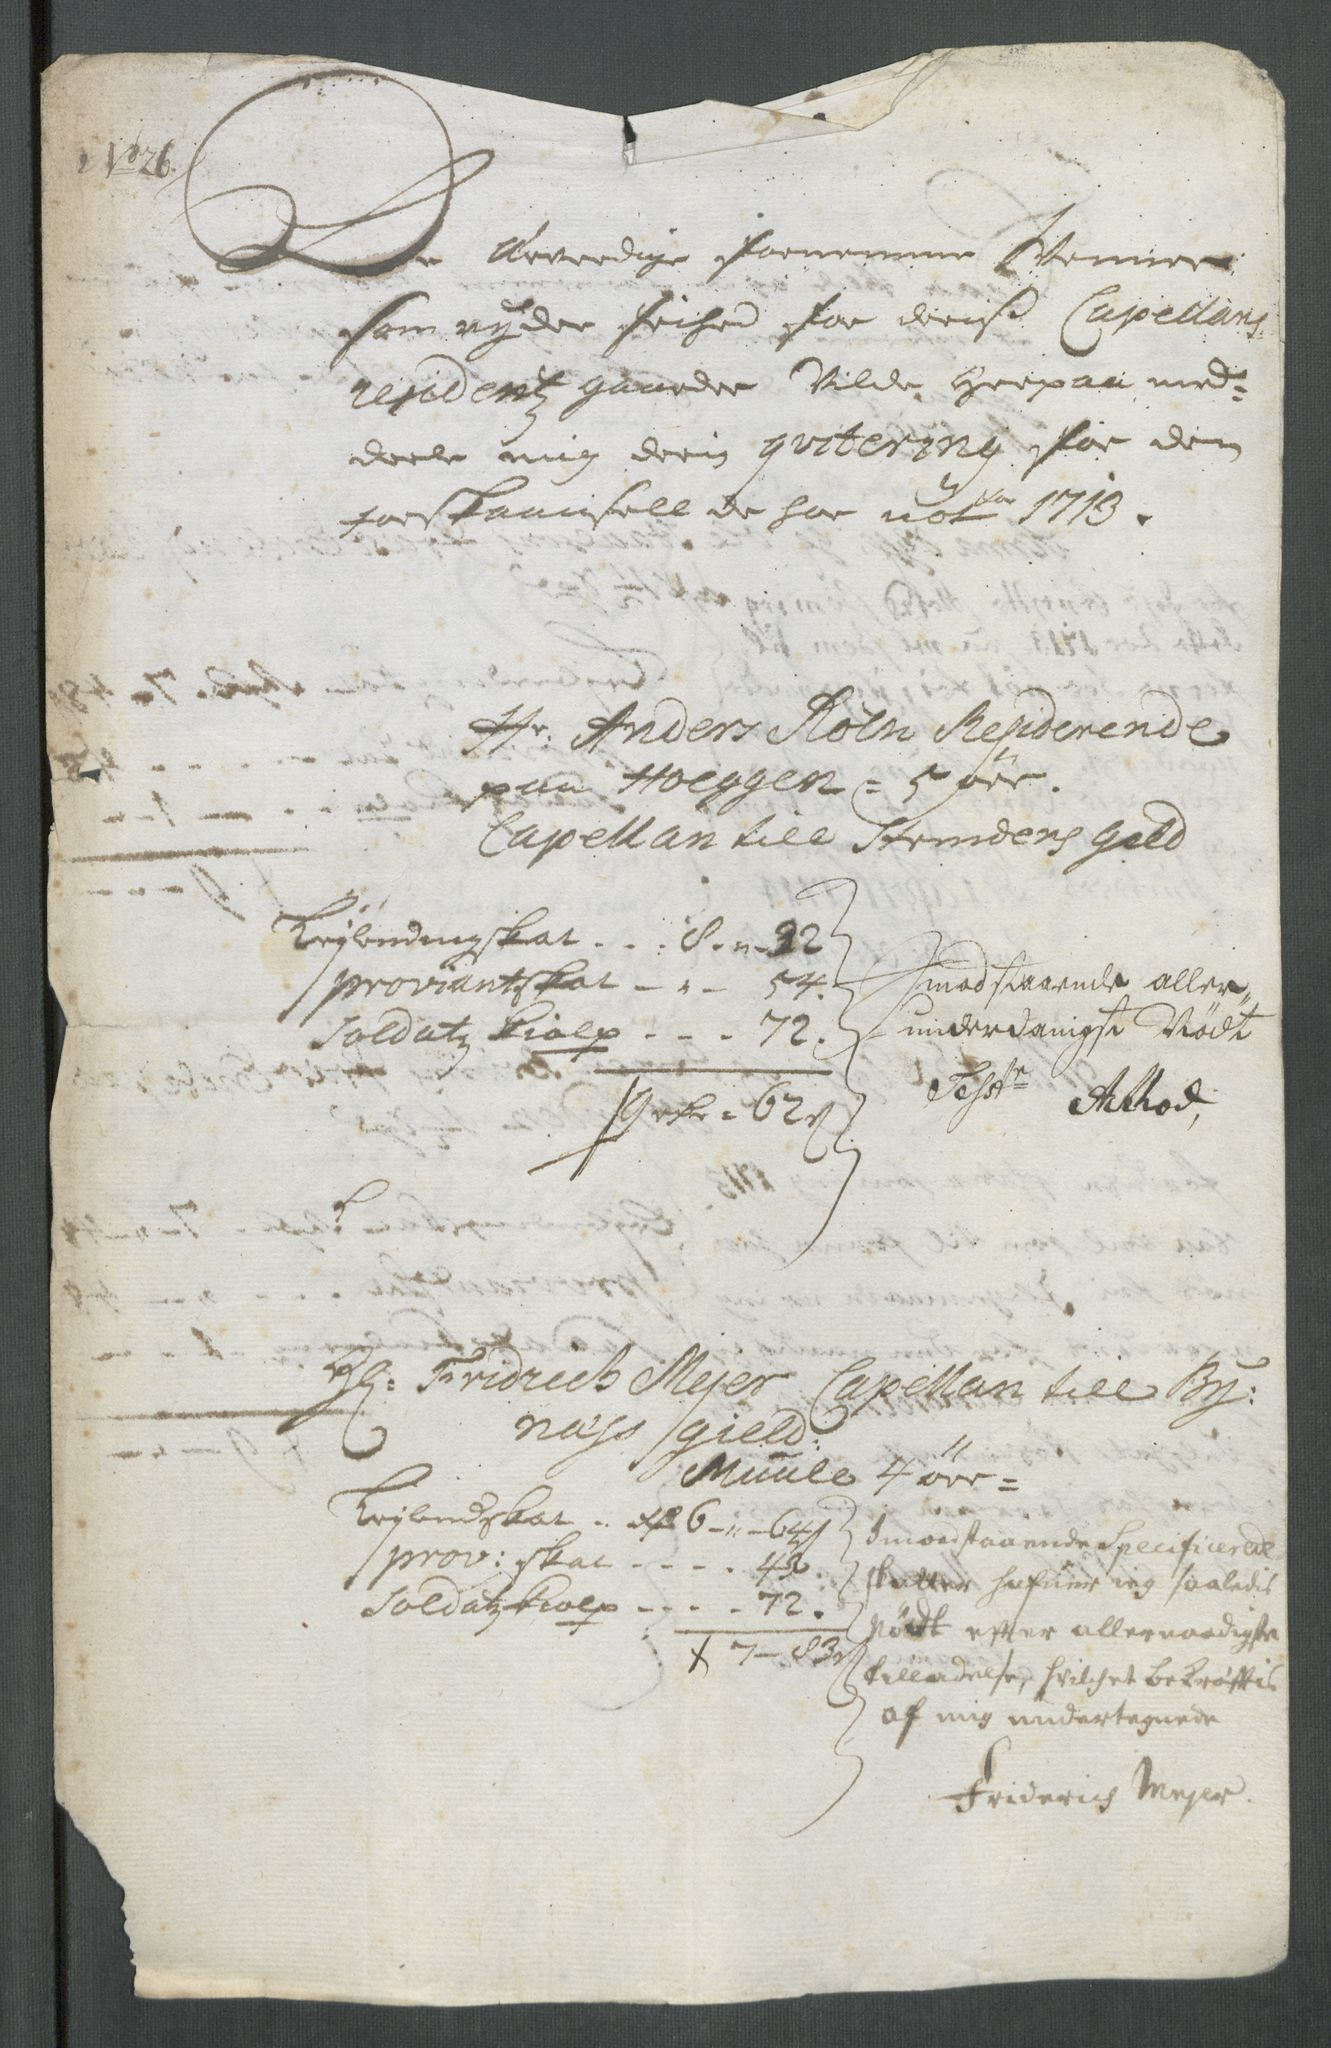 No 26.
De Ærverdige fornemme Venner
som nyder frihed for deris Capellans
residentz gaarder Vilde herpaa med-
deele mig deris qvitering for den
forskaansell de har nöt for 1713.
Hr. Anders Röln Residerende
paa Hoeggen = 5 öer.
Capellan till Stendens gield
Leylendingskat . . . 8 „ 32
proviantskat - „ - 54.
Soldatz hielp - - - 72.
9 rdr = 62 s
modstaaende aller
underdanigst Nödt
Testr ARhod,
Hr: Fridrich Mejer Capellan till By:
näss gield:
Muule 4 öer =
Leylendskat . . rdr 6 - „ - 64 s
prov: skat - - - . 43.
Soldatz hielp - - - - 72.
7 - 83 s
Imodstaaende Specificerede
skatter hafuer ieg saaledis
Nödt efter allernaadigste
tilladelse, hvilchet bekröfftis
af mig undertegnede
Friderich Mejer.